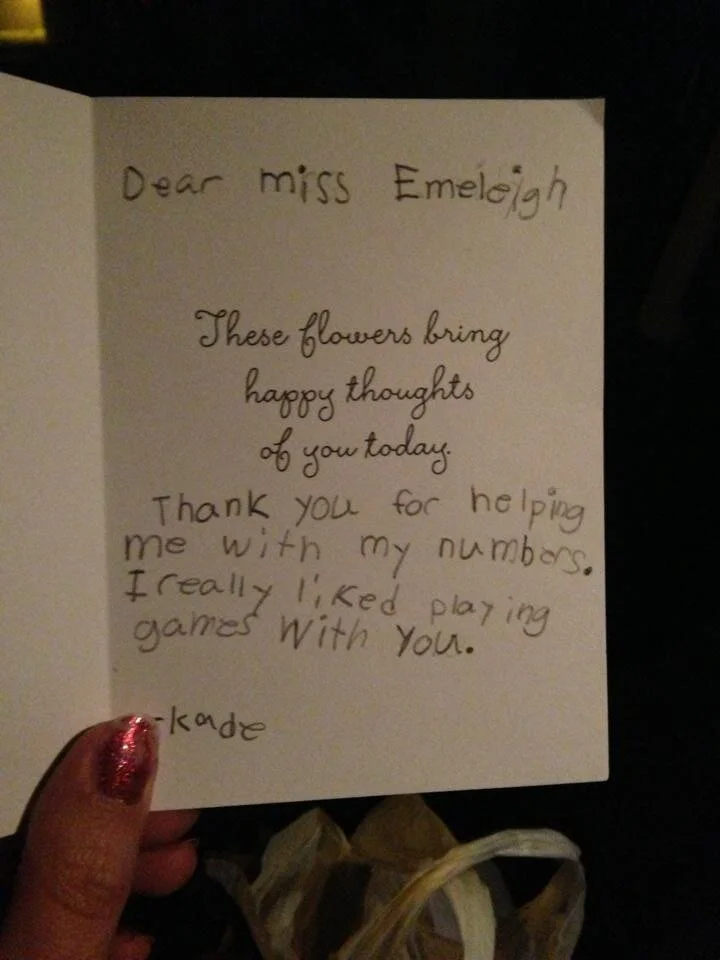 Dear miss Emeleigh
These flowers bring
happy thoughts
of you today.
Thank you for helping
me with my numbers.
I really liked playing
games with you.
-kade